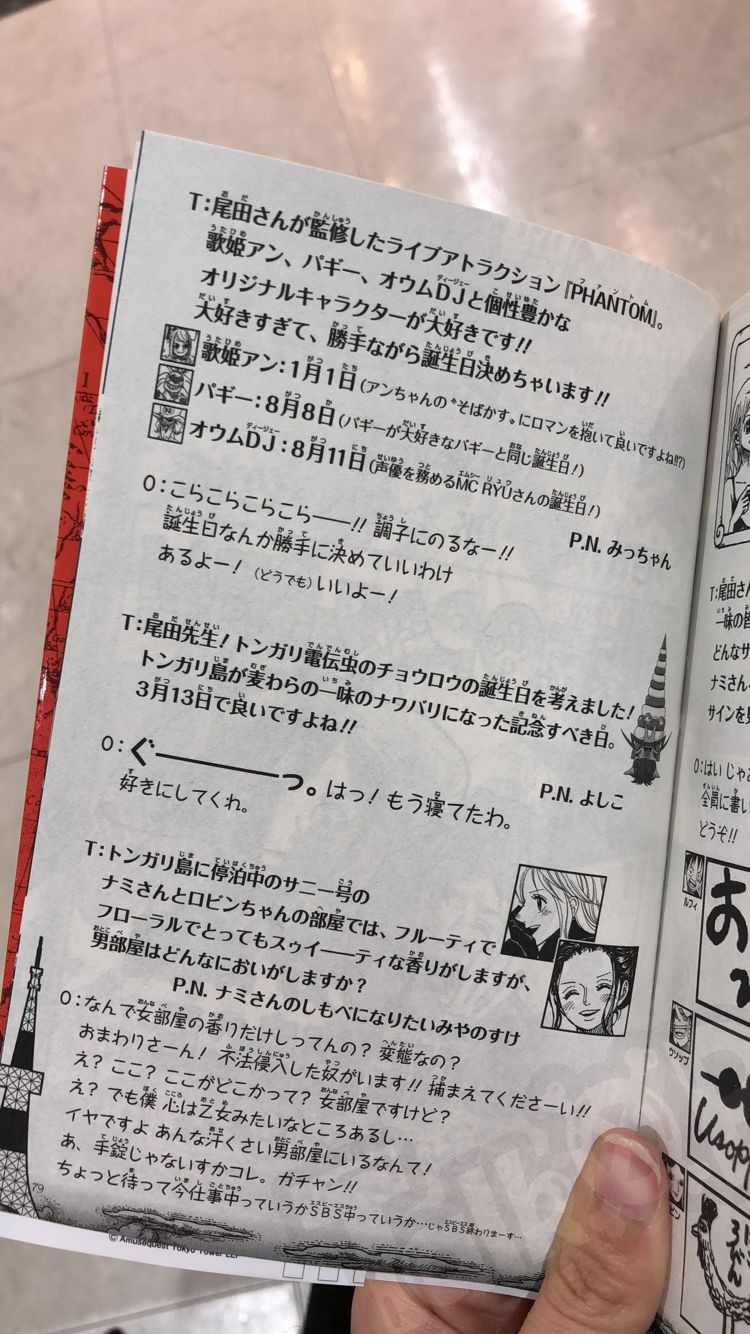 T:尾田さんが監修したライブアトラクション『PHANTOM』。
歌姫アン、パギー、オウムDJと個性豊かな
オリジナルキャラクターが大好きです!!
大好きすぎて、勝手ながら誕生日決めちゃいます!!
歌姫アン:1月1日(アンちゃんの〝そばかす〟にロマンを抱いて良いですよね!!?)
パギー:8月8日(パギーが大好きなバギーと同じ誕生日!)
オウムDJ:8月11日(声優を務めるMC RYUさんの誕生日!)
P.N. みっちゃん
O:こらこらこらこら――!! 調子にのるなー!!
誕生日なんか勝手に決めていいわけ
あるよー!(どうでも)いいよー!
T:尾田先生! トンガリ電伝虫のチョウロウの誕生日を考えました!
トンガリ島が麦わらの一味のナワバリになった記念すべき日。
3月13日で良いですよね!!
P.N. よしこ
O:ぐ―――――っ。はっ! もう寝てたわ。
好きにしてくれ。
T:トンガリ島に停泊中のサニー号の
ナミさんとロビンちゃんの部屋では、フルーティで
フローラルでとってもスゥイ――ティな香りがしますが、
男部屋はどんなにおいがしますか?
P.N. ナミさんのしもべになりたいみやのすけ
O:なんで女部屋の香りだけしってんの? 変態なの?
おまわりさーん! 不法侵入した奴がいます!! 捕まえてくださーい!!
え? ここ? ここがどこかって? 女部屋ですけど?
え? でも僕 心は乙女みたいなところあるし…
イヤですよ あんな汗くさい男部屋にいるなんて!
あ、手錠じゃないすかコレ。ガチャン!!
ちょっと待って今仕事中っていうかSBS中っていうか…じゃSBS終わりまーす…
79
© Amusequest Tokyo Tower LLP
T:尾田さん
一味の皆
どんなサ
ナミさん
サインを見
O:はい じゃあ
全員に書い
どうぞ!!
ルフィ
ウソップ
Usopp
ろびん